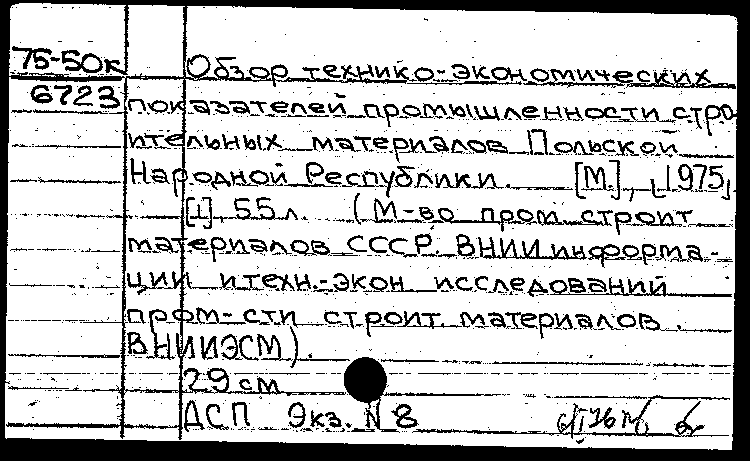 75-50к Обзор технико-экономических
6723 показателей промышленности стро
ительных материалов Польской
Народной Республики. [М.], [1975]
[1], 55 л. (М-во пром. строит
материалов СССР. ВНИИ информа-
ции и техн.-экон исследований
пром-сти строит. материалов.
ВНИИЭСМ).
29 см
ДСП Экз. N 8